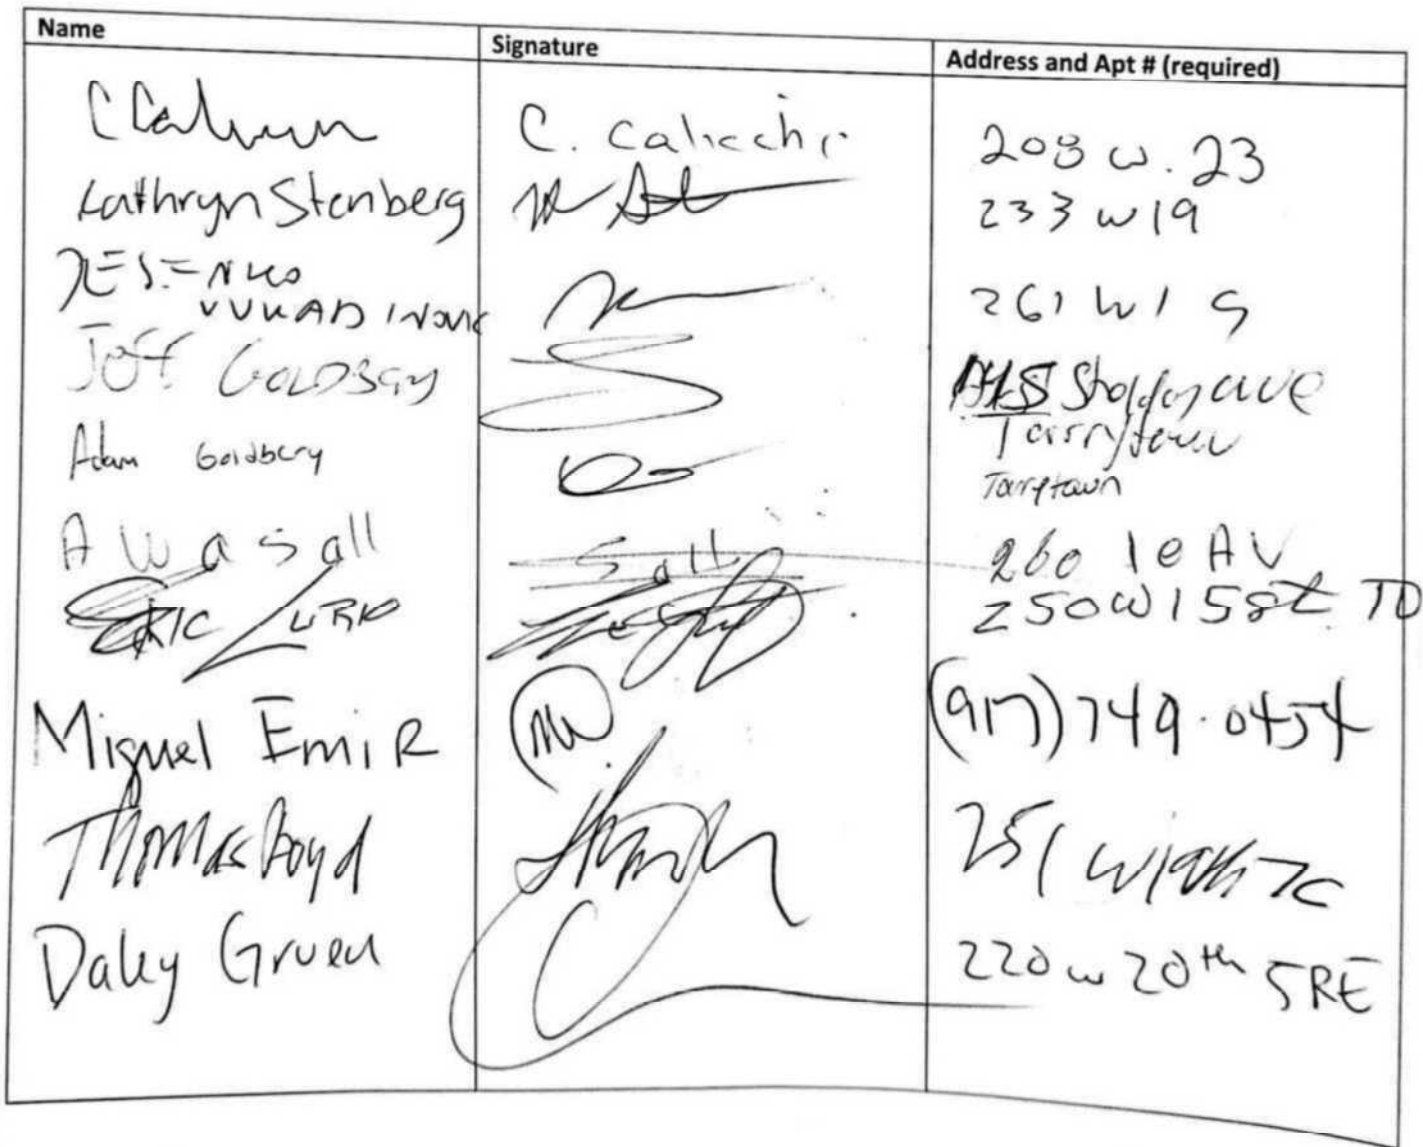 Name Signature Address and Apt # (required)
C. Calicchi 208 w. 23
Kathryn Stenberg 233 w 19
261 W 19
Jeff Goldberg ave
Tarrytown
Adam Goldberg Tarrytown
Awa Sall Sall 260 10 AV
ERIC LURIO 250 W 15
Miguel Emir (917) 749.0454
Thomas Boyd 251 W 19th 7C
Daley Gruen 220 w 20th 5RE